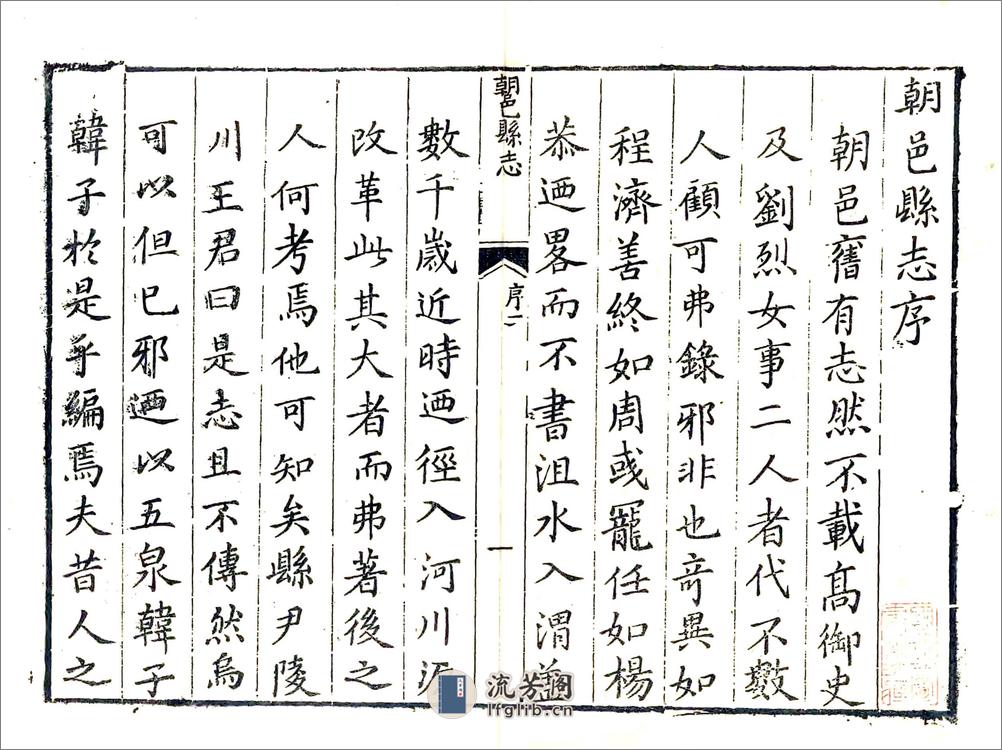 朝邑縣志序
朝邑舊有志然不載高御史
及劉烈女事二人者代不數
人顧可弗錄邪非也奇異如
程濟善終如周彧寵任如楊
恭迺畧而不書沮水入渭蓋
朝邑縣志
序二
一
數千歲近時迺徑入河川流
改革此其大者而弗著後之
人何考焉他可知矣縣尹陵
川王君曰是志且不傳然烏
可以但已邪迺以五泉韓子
韓子於是乎編焉夫昔人之
流芳閣
lfglib.cn